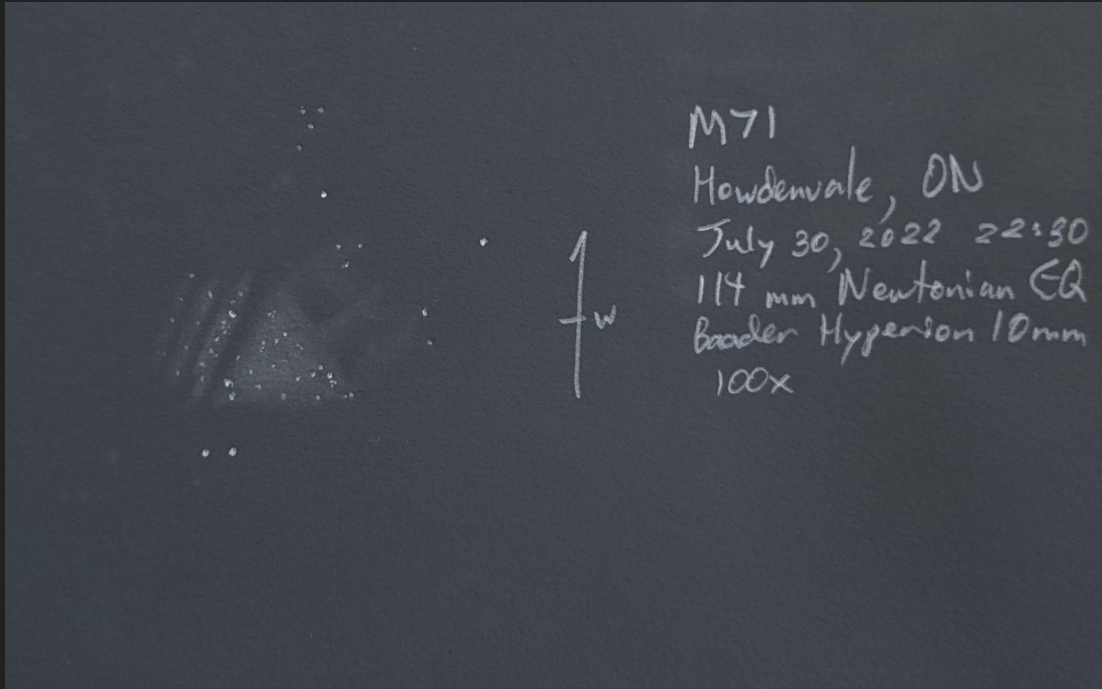 M71
Howdenvale, ON
July 30, 2022 22:30
114 mm Newtonian EQ
Baader Hyperion 10mm
100x
w